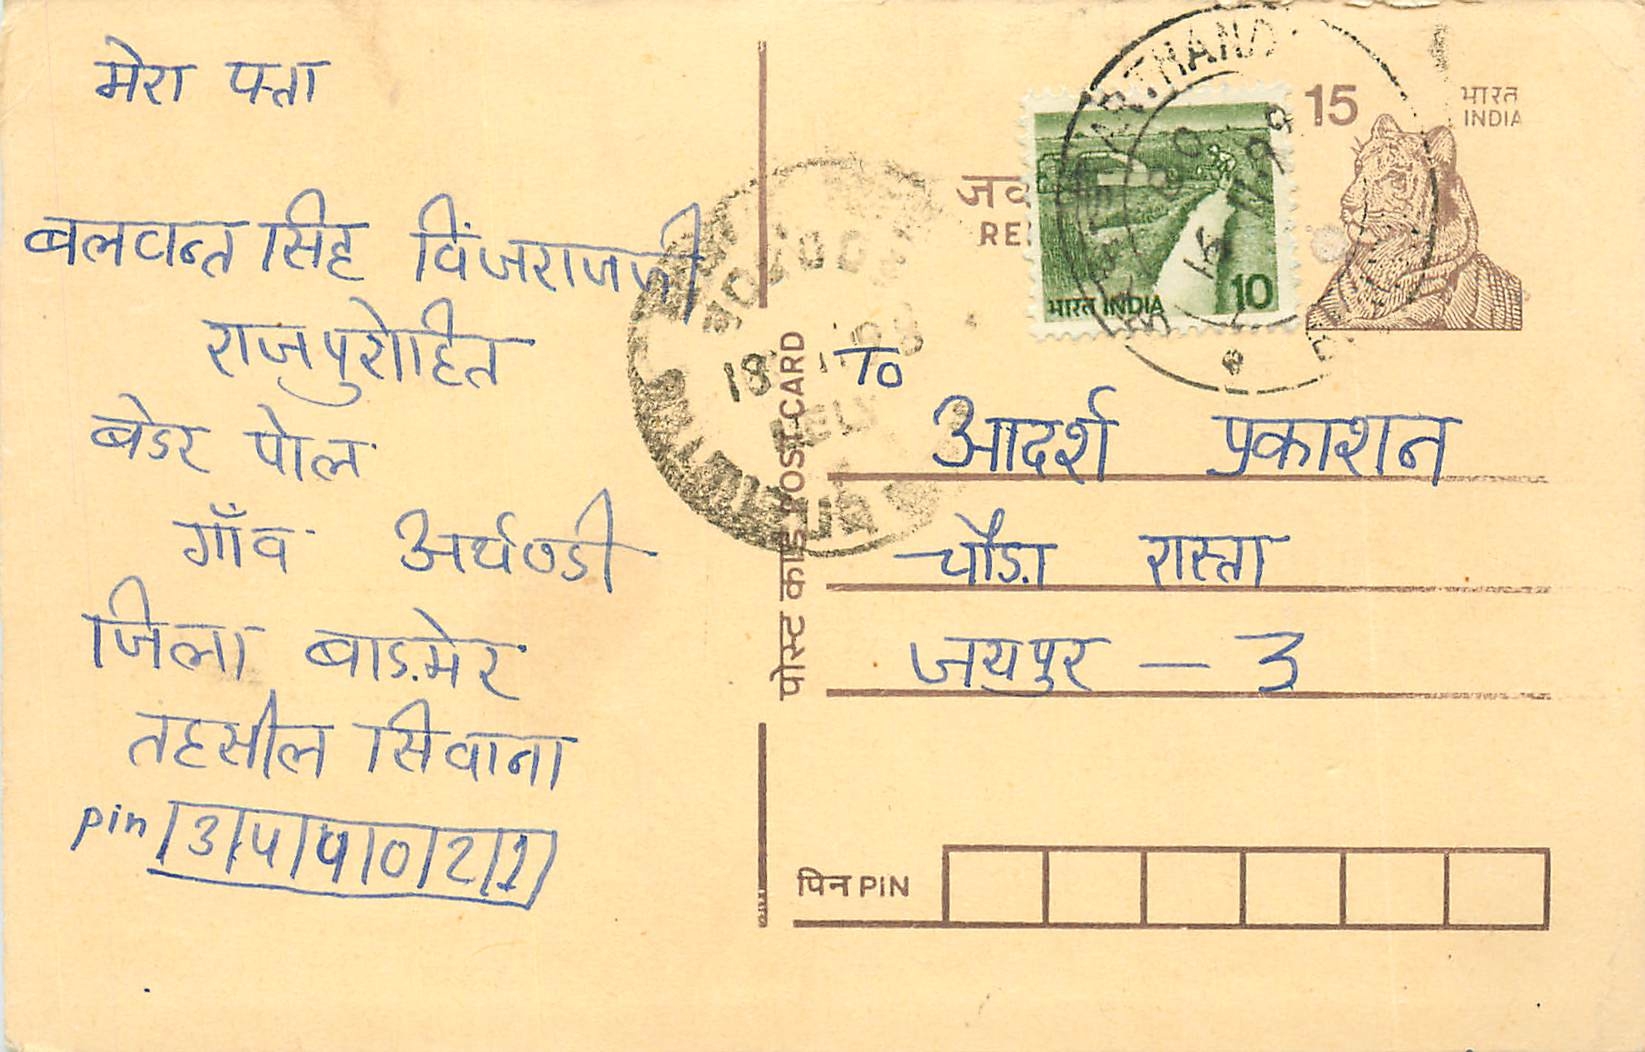 मेरा पत्ता
बलवन्त सिंह विंजराजजी
राजपुरोहित
बेडर पोल
गाँव अर्थण्डी
जिला बाड़मेर
तहसील सिवाना
pin 3 0 2 1
15
भारत
INDIA
जव
RE
भारत INDIA 10
पोस्ट कार्ड POST CARD
To
आदर्श प्रकाशन
चौड़ा रास्ता
जयपुर — 3
पिन PIN